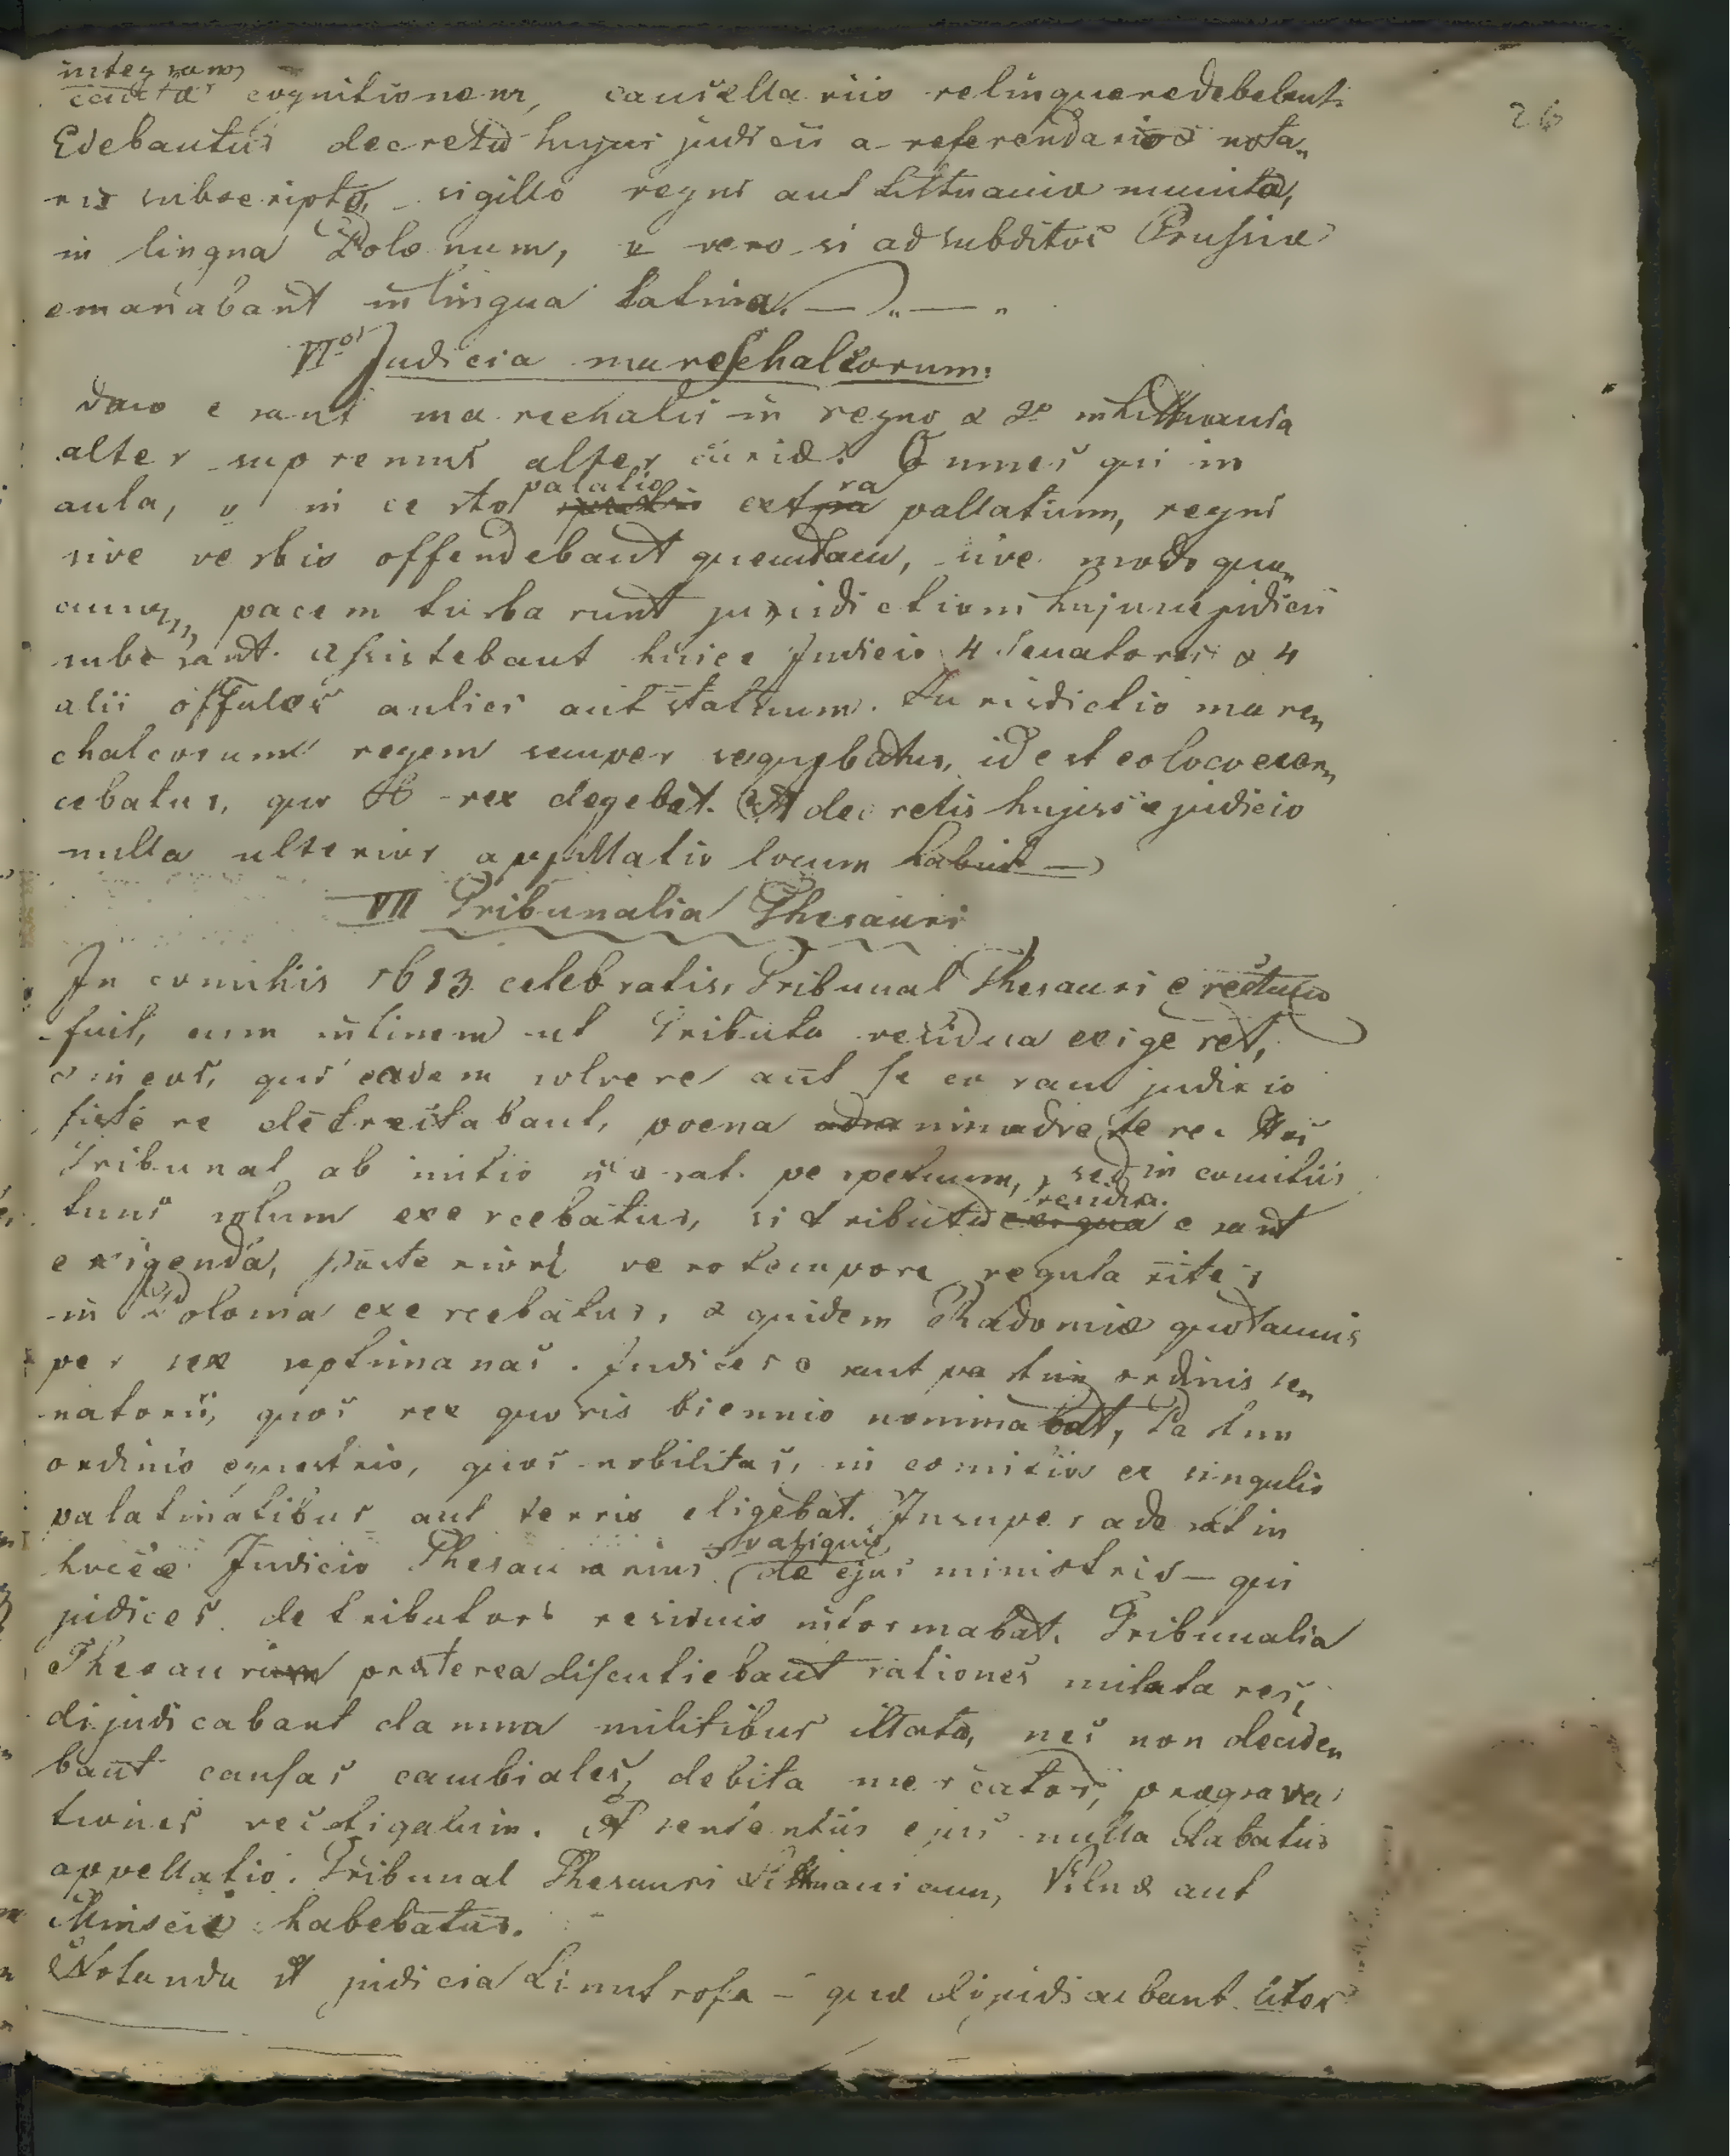 26
integram
causæ cognitionem, cancellariis relinquere debebant.
Edebantur decreta hujus judicii a referendario & nota„
rio subscripta, sigillo regni aut Littuaniæ munita,
in lingua Polonum, vero si ad subditos Prussiæ
emanabant in lingua latina. — „ — „
VI° Judicia mareschalcorum.
Duo erant marechalii in regno & 2° in Littuania
alter supremus alter curiæ. Omnes qui in
aula, in certo palatio extra pallatium, regni
sive verbis offendebant quemdam, sive modo quo„
cunq, pacem turbarunt jurisdictioni hujusce judicii
suberant. Assistebant huice Judicio 4 Senatores & 4
alii aulici aut statuum. Jurisdictio mare„
chalcorum regem semper sequebatur, id est eo loco exer„
cebatur, quo rex degebat. A decretis hujusce judicio
nulla ulterior appellatio locum habuit —
VII Tribunalia Thesauri
In comitiis 1613 celebratis, Tribunal Thesauri erectum
fuit, eum in finem ut Tributa residua exigeret,
& in eos, qui eadem solvere aut se coram judicio
sistere detrectabant, poena animadverteret.
Tribunal ab initio erat perpetuum, sed in comitiis
tunc solum exercebatur, si tributa residua erant
exigenda, posteriori vero tempore regula rite
in Polonia exercebatur, & quidem Radomiæ quotannis
per sex septimanas. Judices erant partim ordinis se„
natorii, quos rex quovis biennio nominabat, Partim
ordinis equestris, quos nobilitas, in comitiis ex singulis
palatinatibus aut terris eligebat. Insuper aderat in
hocce Judicio Thesaurarius v aliquis de ejus ministris — qui
judices de tributors residuis informabat. Tribunalia
Thesauri præterea discutiebant rationes militares,
dijudicabant damna militibus illata, nec non deciden
bant causas cambiales, debita mercator, prægrava
tiones vectigalium. A sententiis ejus nulla dabatur
appellatio. Tribunal Thesauri Littuanicum, Vilnæ aut
Minsciæ habebatur.
Notanda st judicia Limitrofa — quæ dijudicabant lites